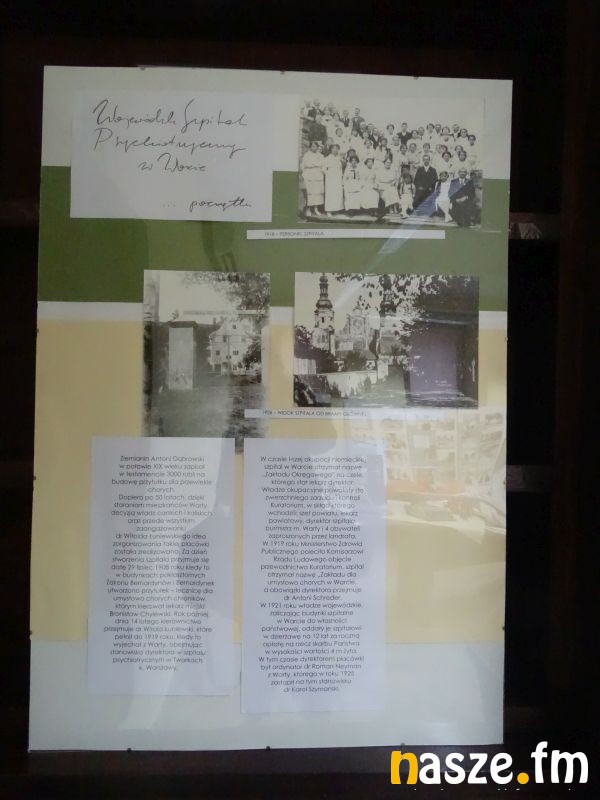 Wojewódzki Szpital
Psychiatryczny
w Warcie
... początki
1918 - PERSONEL SZPITALA
1926 - WIDOK SZPITALA OD BRAMY GŁÓWNEJ
Ziemianin Antoni Dąbrowski
w połowie XIX wieku zapisał
w testamencie 3000 rubli na
budowę przytułku dla przewlekle
chorych.
Dopiero po 50 latach, dzięki
staraniom mieszkańców Warty,
decyzją władz carskich i kaliskich
oraz przede wszystkim
zaangażowaniu
dr Witolda Łuniewskiego idea
zorganizowania takiej placówki
została zrealizowana. Za dzień
stworzenia szpitala przyjmuje się
datę 29 lipiec 1908 roku kiedy to
w budynkach poklasztornych
Zakonu Bernardynów i Bernardynek
utworzono przytułek - lecznicę dla
umysłowo chorych chroników,
którym kierował lekarz miejski
Bronisław Chylewski. Rok później,
dnia 14 lutego kierownictwo
przejmuje dr Witold Łuniewski, które
pełnił do 1919 roku, kiedy to
wyjechał z Warty, obejmując
stanowisko dyrektora w szpitalu
psychiatrycznym w Tworkach
k. Warszawy.
W czasie I-szej okupacji niemieckiej
szpital w Warcie otrzymał nazwę
„Zakładu Okręgowego" na czele,
którego stał lekarz dyrektor.
Władze okupacyjne powołały do
zwierzchniego zarządu i kontroli
Kuratorium, w skład którego
wchodzili: szef powiatu, lekarz
powiatowy, dyrektor szpitala,
burmistrz m. Warty i 4 obywateli
zaproszonych przez landrata.
W 1919 roku Ministerstwo Zdrowia
Publicznego poleciło Komisarzowi
Rządu Ludowego objęcie
przewodnictwa Kuratorium, szpital
otrzymał nazwę „Zakładu dla
umysłowo chorych w Warcie,
a obowiązki dyrektora przejmuje
dr Antoni Schreder.
W 1921 roku władze wojewódzkie,
zaliczając budynki szpitalne
w Warcie do własności
państwowej, oddały je szpitalowi
w dzierżawę na 12 lat za roczną
opłatę na rzecz skarbu Państwa
w wysokości wartości 4 m żyta.
W tym czasie dyrektorem placówki
był ordynator dr Roman Neyman
z Warty, którego w roku 1925
zastąpił na tym stanowisku
dr Karol Szymański.
nasze.fm